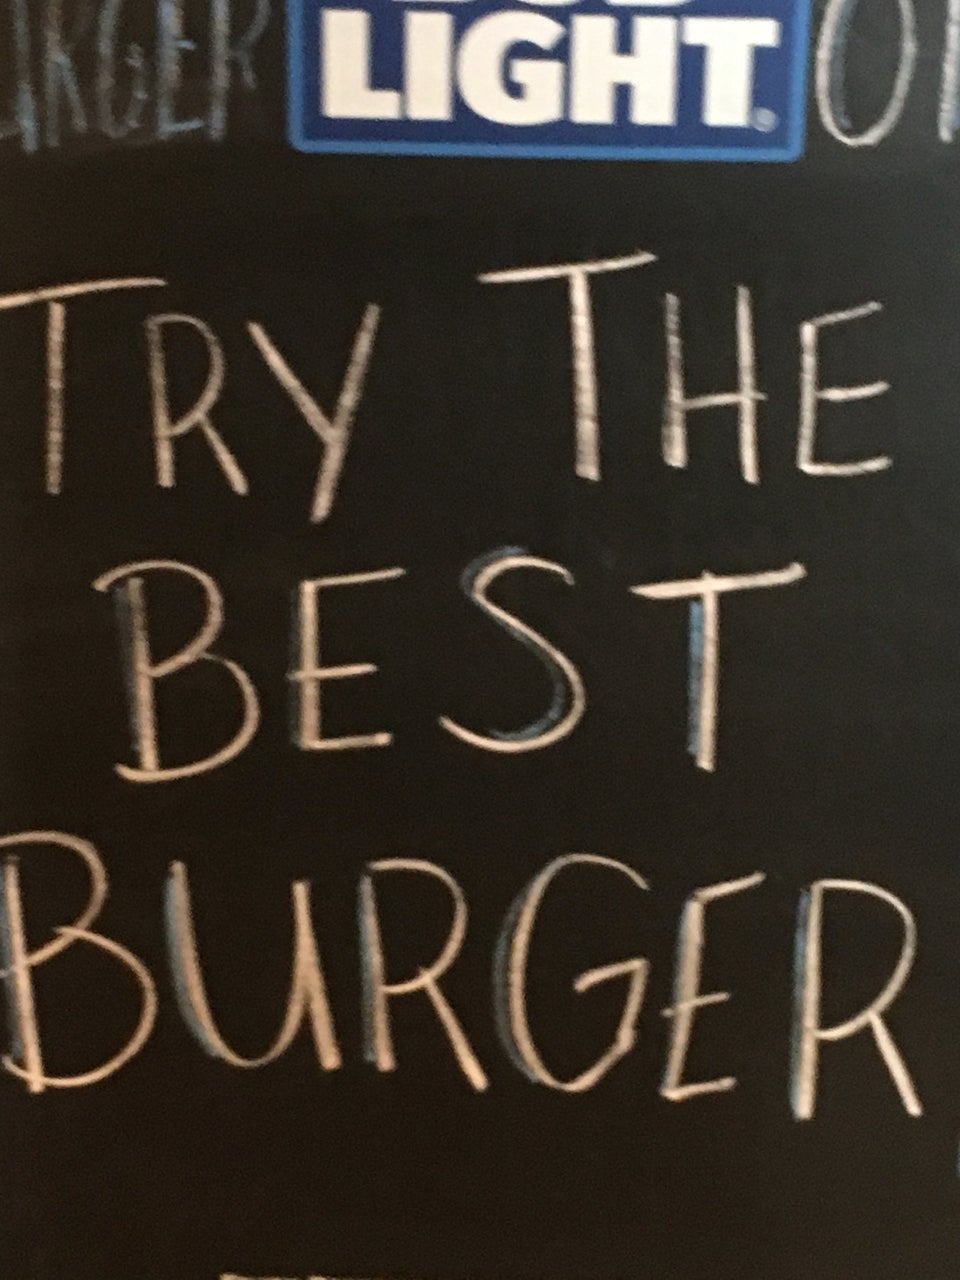 LIGHT
TRY THE
BEST
BURGER